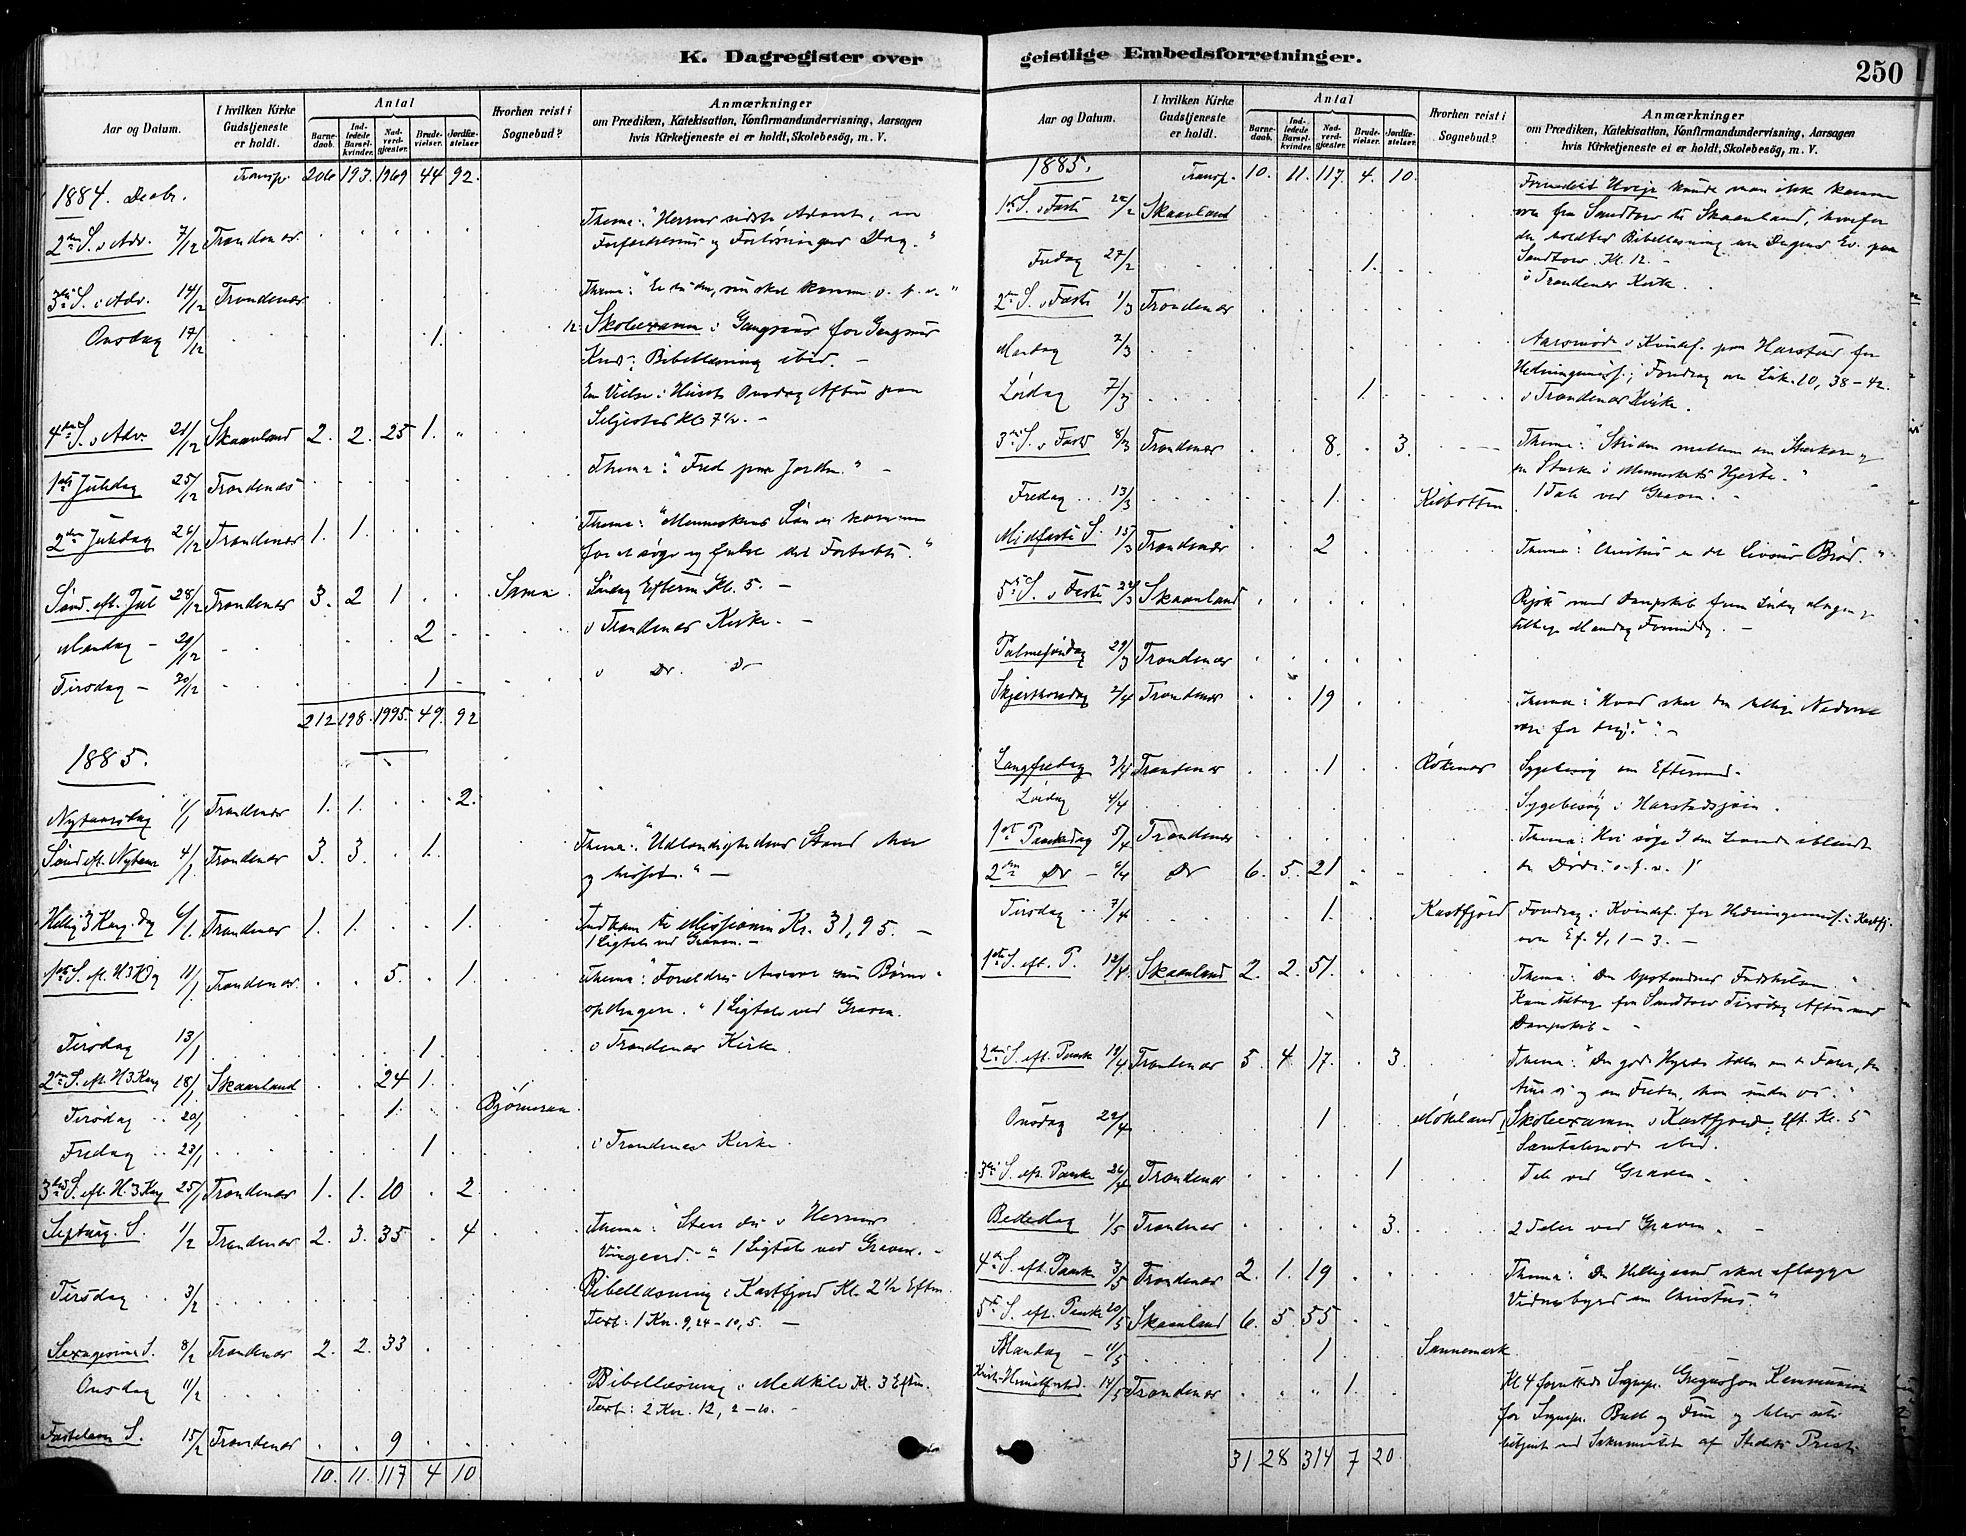 K. Dagregister over
Aar og Datum.
I hvilken Kirke Gudstjeneste er holdt.
Antal
Barnedaab.
Indledede Barselkvinder.
Nadverdgjæster.
Brudevielser.
Jordfæstelser
Hvorhen reist i Sognebud?
Anmærkninger
om Prædiken, Katekisation, Konfirmandundervisning, Aarsagen
hvis Kirketjeneste ei er holdt, Skolebesög, m. V.
Transp. 206 193. 1969 44 92.
1884. Decbr.
2den S. i Adv. 7/12 Trondenæs. Thema: "Herrens sidste Advent, en
Forfærdelsens og Forløsningens Dag."
3die S. i Adv. 14/12 Trondenæs. Thema: "Er du den, som skal komme o. s. v."
Onsdag 17/12 1. 12. Skolexamen i Gangsaas for Gangsaas
Kreds; Bibellæsning ibid. –
En Vielse i Huset Onsdag Aften paa
Seljestad Kl. 7 1/2. –
4de S. i Adv. 21/12 Skaanland 2. 2. 25 1. "
1ste Juledag 25/12 Trondenæs Thema: "Fred paa Jorden." –
2den Juledag 26/12 Trondenæs 1. 1. Thema: "Menneskens Søn er kommen
for at søge og frelse det Fortabte."
Sønd. eft. Jul 28/12 Trondenæs 3. 2 1 Sama Søndag Efterm. Kl. 5. –
Mandag – 29/12 2 i Trondenæs Kirke. –
Tirsdag – 30/12 1 i Do. Do
212 198. 1995. 49. 92
1885.
Nytaarsdag 1/1 Trondenæs 1. 1. 2.
Sønd. eft. Nytaar 4/1 Trondenæs 3. 3. 1. Thema: "Udlændighedens Stand her
og hisset." –
Hellig 3 Kong. Dag 6/1 Trondenæs 1. 1. 1. Indkom til Missionen Kr. 31,95. –
1 Ligtale ved Graven. –
1ste S. eft. H 3 K Dg 11/1 Trondenæs 5. 1. Thema: "Forældres Ansvar som Børne-
opdragere." 1 Ligtale ved Graven.
Tirsdag 13/1 1. i Trondenæs Kirke.
2den S. eft. H 3 Kong 18/1 Skaanland 24 1.
Tirsdag 20/1 1. Bjørnraa
Fredag 23/1 1 i Trondenæs Kirke.
3die S. eft. H. 3 Kong 25/1 Trondenæs 1. 1. 10 2.
Septuag. S. 1/2 Trondenæs 2. 3. 35 4 Thema: "Sten der i Herrens
Vingaard." 1 Ligtale ved Graven. –
Tirsdag 3/2 Bibellæsning i Kastfjord Kl. 2 1/2 Eftm.
Text: 1 Kor. 9,24–10,5. –
Sexagesima S. 8/2 Trondenæs 2. 2. 33
Onsdag 11/2 Bibellæsning i Medkile Kl. 3 Eftm.
Text: 2 Kor. 12, 2–10. –
Fastelavn S. 15/2 Trondenæs 9
10. 11. 117 4 10
geistlige Embedsforretninger.
250
Aar og Datum.
I hvilken Kirke Gudstjeneste er holdt.
Antal
Barnedaab.
Indledede Barselkvinder.
Nadverdgjæster.
Brudevielser.
Jordfæstelser
Hvorhen reist i Sognebud?
Anmærkninger
om Prædiken, Katekisation, Konfirmandundervisning, Aarsagen
hvis Kirketjeneste ei er holdt, Skolebesög, m. V.
1885. Transp. 10. 11. 117. 4. 10.
1ste S. i Faste 22/2 Skaanland Formedelst Uveir kunde man ikke komme
over fra Sandtorv til Skaanland, hvorfor
der holdtes Bibellæsning over Dagens Ev. paa
Sandtorv Kl. 12. –
Fredag 27/2 1. i Trondenæs Kirke.
2den S. i Faste 1/3 Trondenæs
Mandag 2/3 Aarsmøde i Kvindef. paa Harstad for
Hedningemiss.; Foredrag over Luk. 10, 38–42.
Lördag 7/3 1. i Trondenæs Kirke.
3die S. i Faste 8/3 Trondenæs 8. 3. Thema: "Striden mellem en Stærkere og
en Stærk i Menneskets Hjerte."
Fredag 13/3 1. Kilbotten 1 Tale ved Graven. –
Midfaste S. 15/3 Trondenæs 2 Thema: "Christus er det Livsens Brød."
5te S. i Faste 22/3 Skaanland Rejste med Dampskib frem Lördag Morgen og
tilbage Mandag Formiddag. –
Palmesöndag 29/3 Trondenæs
Skjærthorsdag 2/4 Trondenæs 19 Thema: "Hvad skal den hellige Nadvere
være for dig?" –
Langfredag 3/4 Trondenæs 1 Røkenæs Sygebesög om Eftermid.
Lördag 4/4 Sygebesög i Harstadsjøen.
1ste Paaskedag 5/4 Trondenæs Thema: Hvi søge I den Levende iblandt
de Døde o. s. v. !
2den Do – 6/4 Do 6. 5. 21
Tirsdag 7/4 1. Kastfjord Foredrag i Kvindef. for Hedningemiss. i Kastfj.
over Ef. 4, 1–3. –
1ste S. eft. P. 12/4 Skaanland 2. 2. 51. Thema: "Den Opstandnes Fredshilsen."
Kom tilbage fra Sandtorv Tirsdag Aften med
Dampskib –
2den S. eft. Paaske 19/4 Trondenæs 5 4. 17. 3. Thema: "Den gode Hyrde
Onsdag 22/4 1 Mökeland Skolexamen i Kastfjord; Eft. Kl. 5
Samtalemøde ibid.
3die S. eft. Paaske 26/4 Trondenæs 1 Tale ved Graven
Bededag 1/5 Trondenæs 3. 2 Taler ved Graven.
4de S. eft. Paaske 3/5 Trondenæs 2. 1. 19 Thema: "Den Helligaand skal aflægge
Vidnesbyrd om Christus."
5te S. eft. Paaske 10/5 Skaanland 6. 5. 55
Mandag – 11/5 1 Sannemark
Kristi Himmelfartsd. 14/5 Trondenæs 1. Kl 4 forrettede Sognepr. Gregussen Kommunion
for Sognepr. Buch og Frue og blev selv
betjent med Sakramentet af Stedets Præst.
31 28 314 7 20.